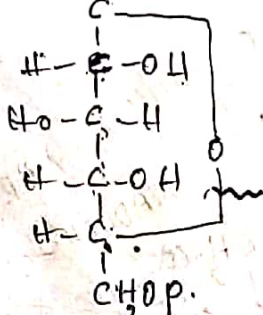 C
H-C-OH
HO-C-H
O
H-C-OH
H-C
CH₂OP.